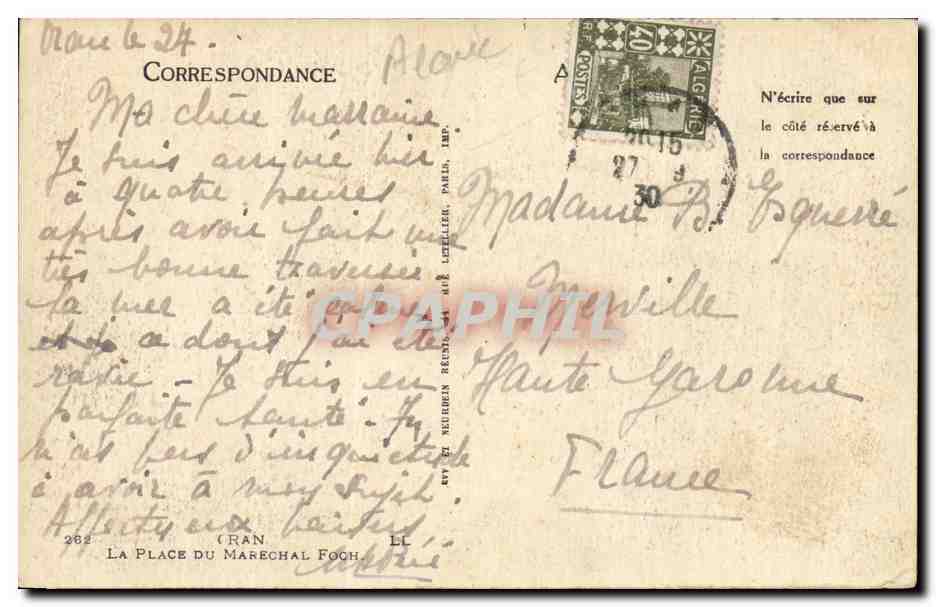 Oran le 24.
CORRESPONDANCE
Ma chère marraine
Je suis arrivée hier
à quatre heures
après avoir fait une
très bonne traversée
la mer a été calme
ce dont j'ai été
ravie - Je suis en
parfaite santé - Tu
n'as pas d'inquiétude
à avoir à mon sujet.
Affectueux baisers
262 ORAN LL
LA PLACE DU MARECHAL FOCH
LEVY ET NEURDEIN RÉUNIS, 44 RUE LETELLIER, PARIS, IMP.
A
40
ALGERIE
POSTES
RF
15
27 9
30
N'écrire que sur
le côté réservé à
la correspondance
Madame B. Esquerré
Merville
Haute Garonne
France
CPAPHIL